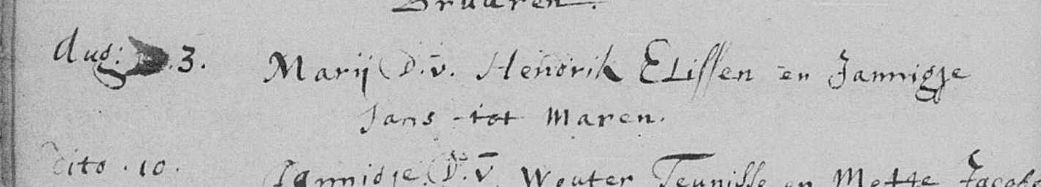 Aug: 3. Marij D. v. Hendrik Elissen en Jannigje
Jans tot Maren.
Dito 10. Jannidje D. v. Wouter Teunisse en Mette Jacobs